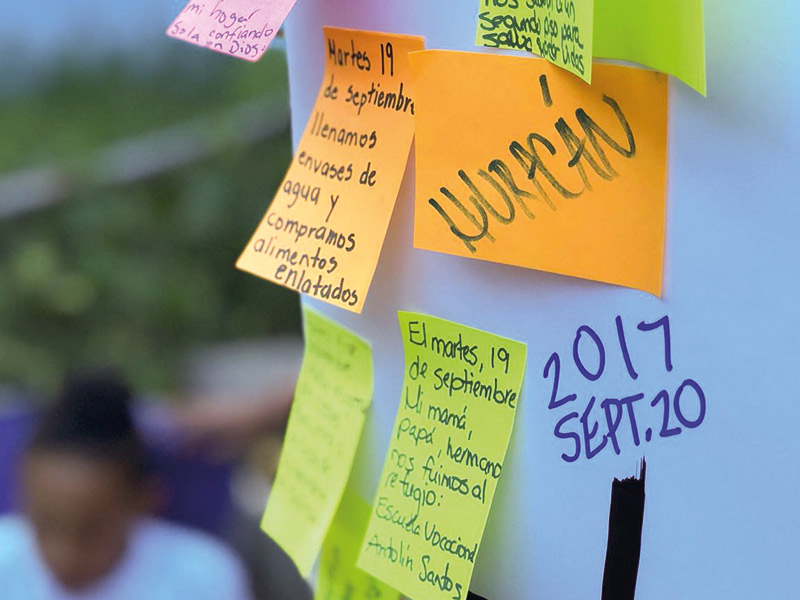 mi hogar
sola confiando
en Dios.
segundo piso para
Martes 19
de septiembre
llenamos
envases de
agua y
compramos
alimentos
enlatados
HURACÁN
El martes, 19
de septiembre
Mi mamá,
papá, hermano
nos fuimos al
refugio:
Escuela Vocacional
Antolín Santos
2017
SEPT. 20